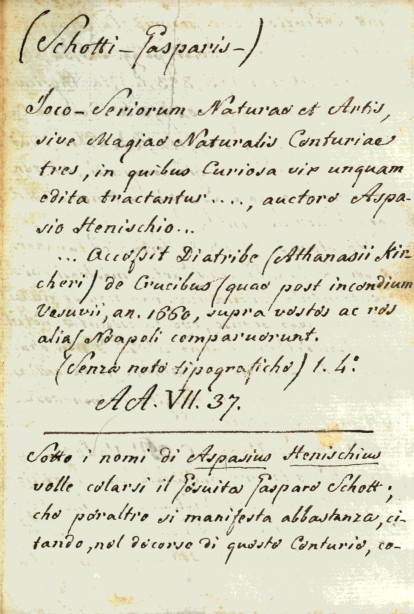 (Schotti - Gasparis -)
Joco-Seriorum Naturae et Artis,
sive Magiae Naturalis Centuriae
tres, in quibus Curiosa vix unquam
edita tractantur...., auctore Aspa-
sio Henischio...
... Accessit Diatribe (Athanasii Kir-
cheri) de Crucibus (quae post incendium
Vesuvii, an. 1660, supra vestes ac res
alias Neapoli comparuerunt.
(Senza note tipografiche) 1. 4.º
AA. VII. 37.
Sotto i nomi di Aspasius Henischius
volle celarsi il Gesuita Gasparo Schott;
che peraltro si manifesta abbastanza, ci-
tando, nel decorso di queste Centurie, co-